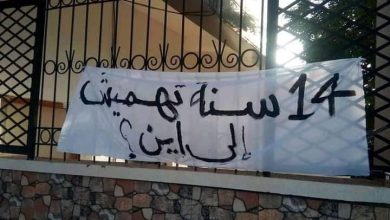 14 سنة تهميش
إلى أين؟